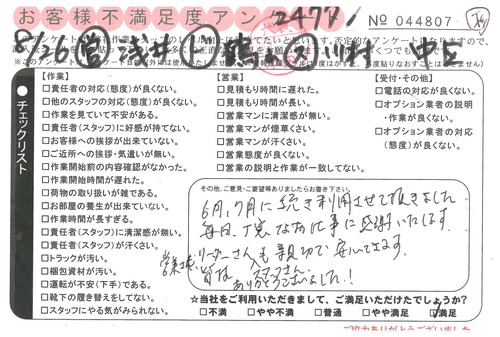 お客様不満足度アン
2477
№ 044807
8/26 営 浅井 鶴 川村
チェックリスト
【作業】
□責任者の対応(態度)が良くない。
□他のスタッフの対応(態度)が良くない。
□作業を見ていて不安がある。
□責任者(スタッフ)に好感が持てない。
□お客様への挨拶が出来ていない。
□ご近所への挨拶・気遣いが無い。
□作業開始前の内容確認がなかった。
□作業開始時間が遅れた。
□荷物の取り扱いが雑である。
□お部屋の養生が出来ていない。
□作業時間が長すぎる。
□責任者(スタッフ)に清潔感が無い。
□責任者(スタッフ)が汗くさい。
□トラックが汚い。
□梱包資材が汚い。
□運転が不安(下手)である。
□靴下の履き替えをしてない。
□スタッフにやる気がみられない。
【営業】
□見積もり時間に遅れた。
□見積もり時間が長い。
□営業マンに清潔感が無い。
□営業マンが煙草くさい。
□営業マンが汗くさい。
□営業態度が良くない。
□営業の説明と作業が一致してない。
【受付・その他】
□電話の対応が良くない。
□オプション業者の説明
・作業が良くない。
□オプション業者の対応
(態度)が良くない。
その他、ご意見・ご要望等ありましたらお書き下さい。
6月,7月に続き利用させて頂きました
毎回、丁寧なお仕事に感謝いたします。
営業さん、リーダーさんも親切で安心できます。
皆な スタッフさん
ありがとうございました!
☆当社をご利用いただきまして、ご満足いただけたでしょうか?
□不満 □やや不満 □普通 □やや満足 □満足
ご協力ありがとうございました